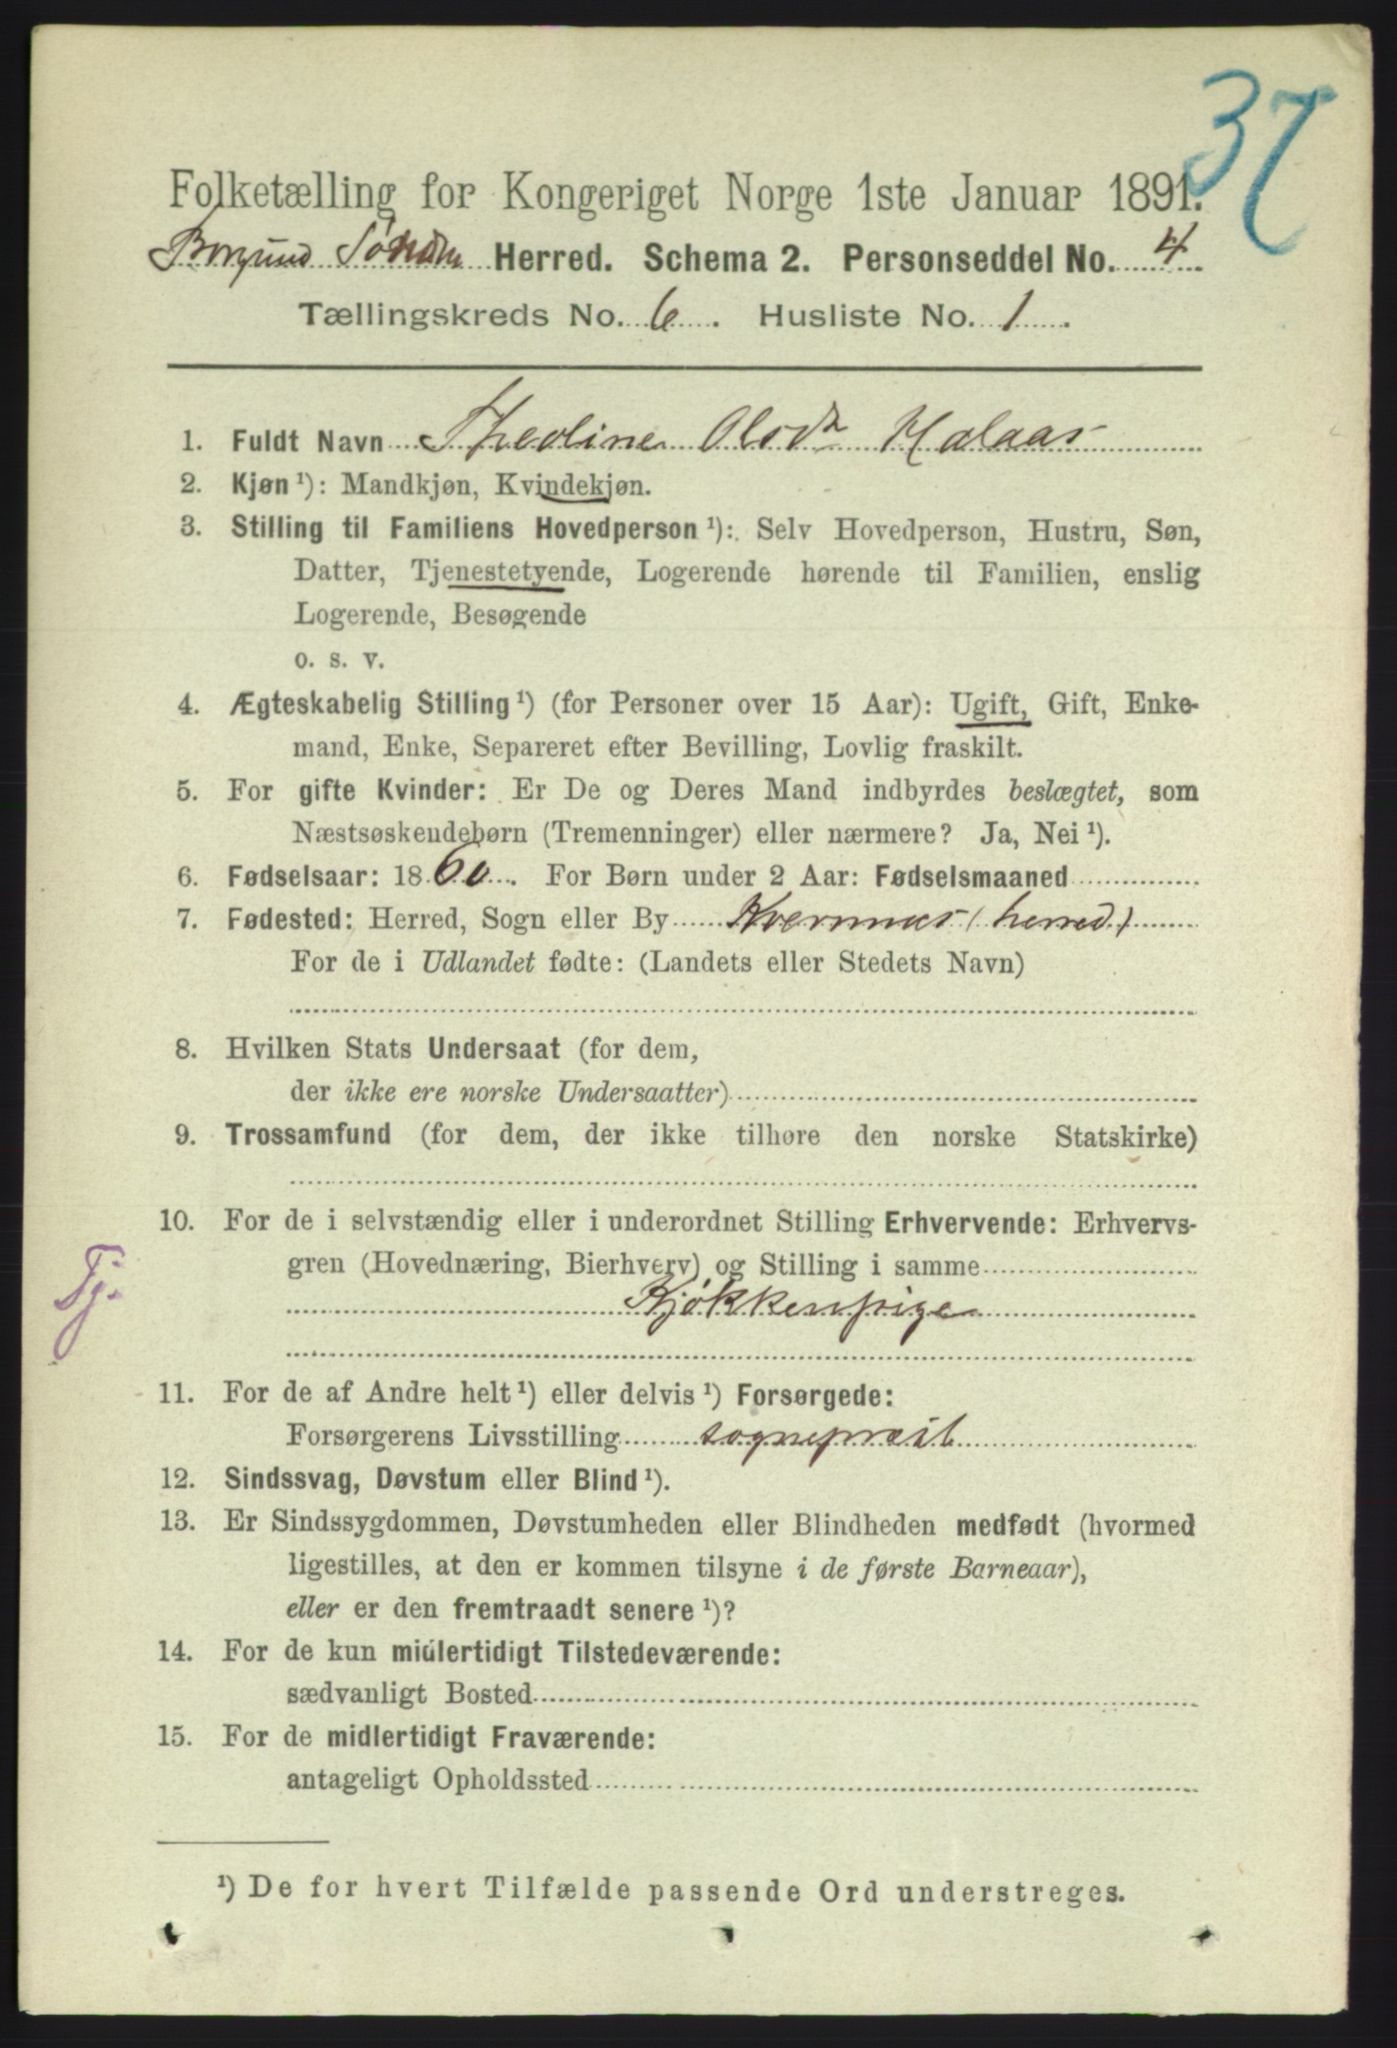 37
Folketælling for Kongeriget Norge 1ste Januar 1891.
Borgund Herred. Schema 2. Personseddel No. 4
Tællingskreds No. 6. Husliste No. 1.
1. Fuldt Navn Theoline Olsdr Halaas
2. Kjøn ¹): Mandkjøn, Kvindekjøn.
3. Stilling til Familiens Hovedperson ¹): Selv Hovedperson, Hustru, Søn,
Datter, Tjenestetyende, Logerende hørende til Familien, enslig
Logerende, Besøgende
o. s. v.
4. Ægteskabelig Stilling ¹) (for Personer over 15 Aar): Ugift, Gift, Enke-
mand, Enke, Separeret efter Bevilling, Lovlig fraskilt.
5. For gifte Kvinder: Er De og Deres Mand indbyrdes beslægtet, som
Næstsøskendebørn (Tremenninger) eller nærmere? Ja, Nei ¹).
6. Fødselsaar: 1860. For Børn under 2 Aar: Fødselsmaaned
7. Fødested: Herred, Sogn eller By Kvernnæs (herred)
For de i Udlandet fødte: (Landets eller Stedets Navn)
8. Hvilken Stats Undersaat (for dem,
der ikke ere norske Undersaatter)
9. Trossamfund (for dem, der ikke tilhøre den norske Statskirke)
10. For de i selvstændig eller i underordnet Stilling Erhvervende: Erhvervs-
gren (Hovednæring, Bierhverv) og Stilling i samme
Tj.
Kjøkkenpige
11. For de af Andre helt ¹) eller delvis ¹) Forsørgede:
Forsørgerens Livsstilling sognepræst
12. Sindssvag, Døvstum eller Blind ¹).
13. Er Sindssygdommen, Døvstumheden eller Blindheden medfødt (hvormed
ligestilles, at den er kommen tilsyne i de første Barneaar),
eller er den fremtraadt senere ¹)?
14. For de kun midlertidigt Tilstedeværende:
sædvanligt Bosted
15. For de midlertidigt Fraværende:
antageligt Opholdssted
¹) De for hvert Tilfælde passende Ord understreges.